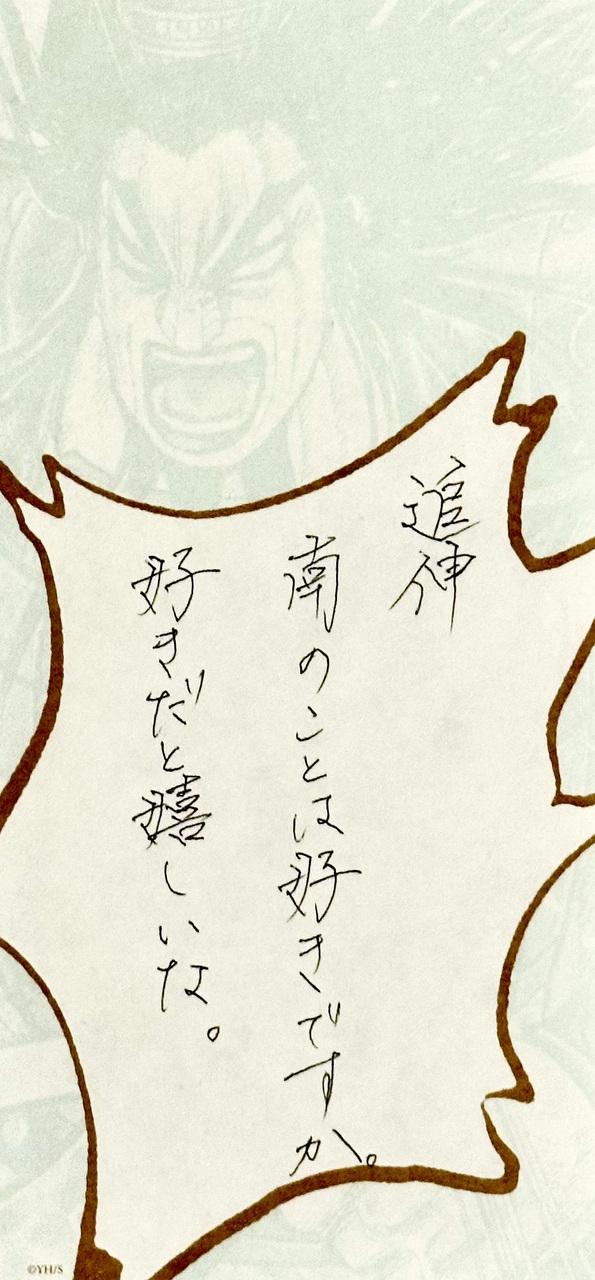 追伸
南のことは好きですか。
好きだと嬉しいな。
©YH/S